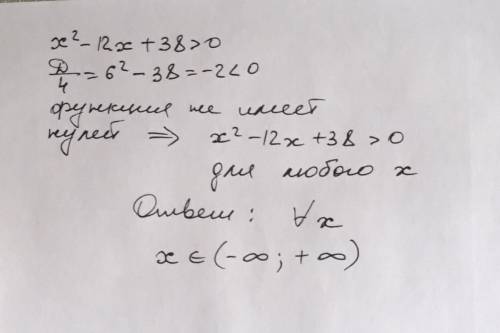 x² - 12x + 38 > 0
D/4 = 6² - 38 = -2 < 0
функция не имеет
нулей ⇒ x² - 12x + 38 > 0
для любого x
Ответ: ∀x
x ∈ (-∞; +∞)